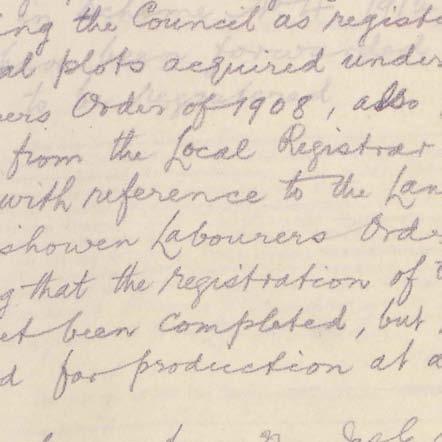 ing the Council as registe
al plots acquired under
ers Order of 1908, also
from the Local Registrar
with reference to the Lan
ishowen Labourers Orde
g that the registration of
et been completed, but
d for production at a